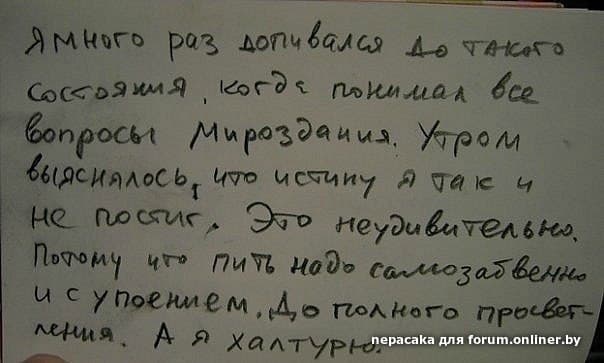 Я много раз допивался до такого
состояния, когда понимал все
вопросы Мироздания. Утром
выяснялось, что истину я так и
не постиг. Это неудивительно.
Потому что пить надо самозабвенно
и с упоением. До полного просвет-
ления. А я халтурю.
перасака для forum.onliner.by